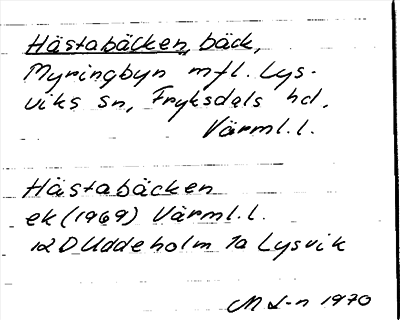 Hästabäcken, bäck,
Myringbyn mfl. Lys-
viks sn, Fryksdals hd,
Värml.l.
Hästabäcken
ek (1969) Värml.l.
12D Uddeholm 1a Lysvik
M L-n 1970